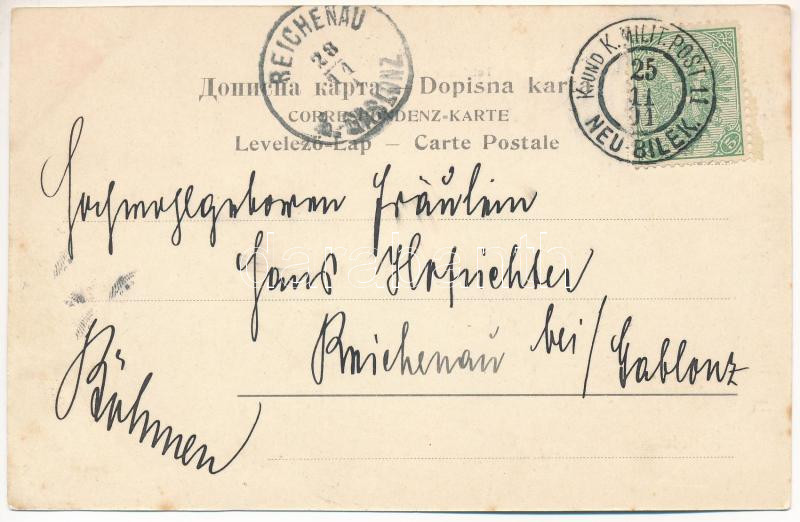 REICHENAU
28
11
B. GABLONZ
K. UND K. MILIT. POST 11
25
11
01
NEU-BILEK.
5
Дописна карта — Dopisna karta
CORRESPONDENZ-KARTE
Levelező-Lap — Carte Postale
Hochwohlgeboren Fräulein
Hans Hofrichter
Reichenau bei/Gablonz
Böhmen
darabanth